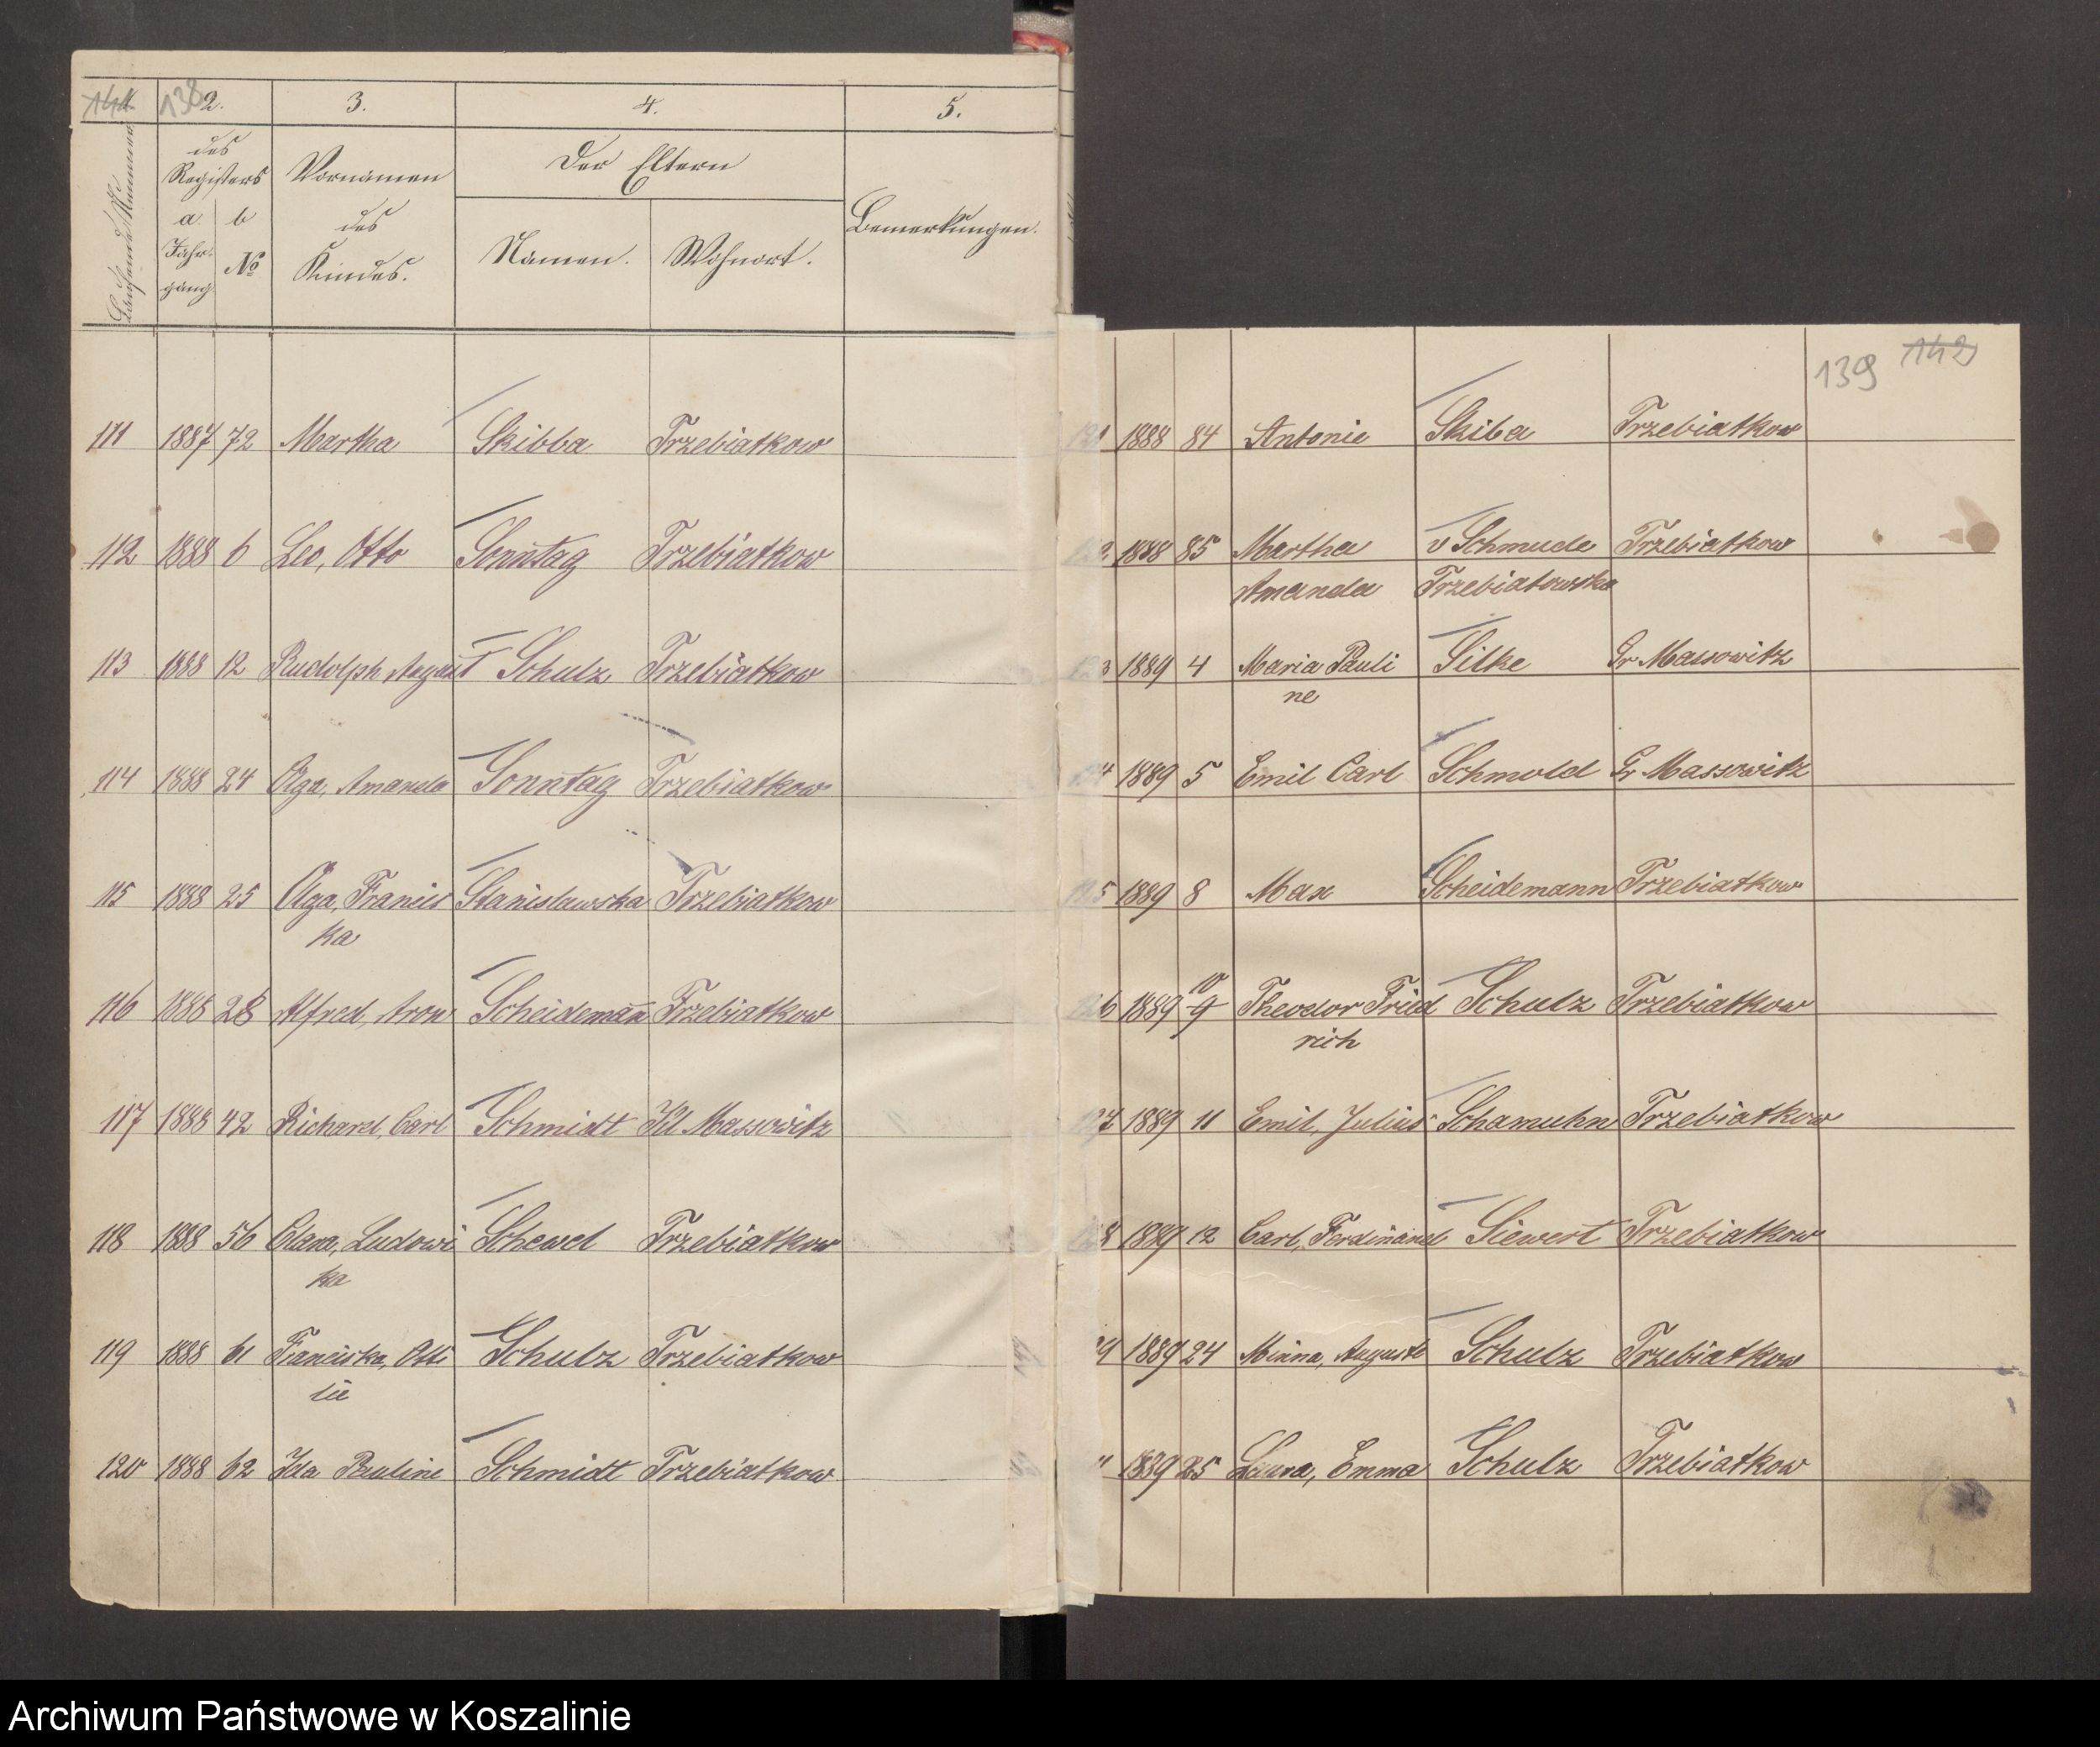 138 2. 3. 4. 5.
Laufende Nummer
des Registers
Vornamen des Kindes.
Der Eltern
Bemerkungen.
a. Jahrgang b № Namen. Wohnort.
111 1887 72 Martha Skibba Trzebiatkow
112 1888 6 Leo, Otto Sonntag Trzebiatkow
113 1888 12 Rudolph August Schulz Trzebiatkow
114 1888 24 Olga, Amanda Sonntag Trzebiatkow
115 1888 25 Olga, Francis Stanislawska Trzebiatkow
ka
116 1888 28 Alfred, Aron Scheidemann Trzebiatkow
117 1888 42 Richard, Carl Schmidt Kl Massowitz
118 1888 56 Clara, Ludowi Schewel Trzebiatkow
ka
119 1888 61 Franciska, Otti Schulz Trzebiatkow
lie
120 1888 62 Ida Pauline Schmidt Trzebiatkow
139 142
121 1888 84 Antonie Skiba Trzebiatkow
1888 85 Martha v Schmude Trzebiatkow
Amanda Trzebiatowska
1889 4 Maria Pauli Silke Gr Massowitz
ne
1889 5 Emil Carl Schmold Gr Massowitz
1889 8 Max Scheidemann Trzebiatkow
10
1889 9 Theodor Fried Schulz Trzebiatkow
rich
1889 11 Emil, Julius Schamuhn Trzebiatkow
1889 12 Carl, Ferdinand Siewert Trzebiatkow
1889 24 Minna, Auguste Schulz Trzebiatkow
1889 25 Laura, Emma Schulz Trzebiatkow
Archiwum Państwowe w Koszalinie